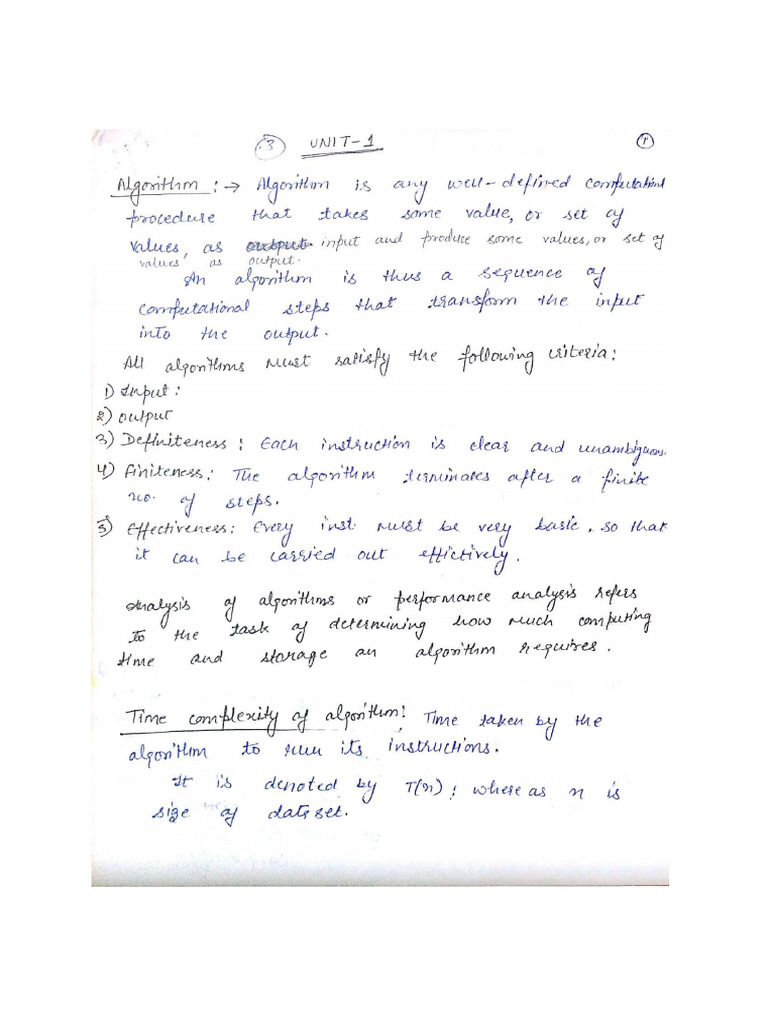 3 UNIT-1 1
Algorithm :→ Algorithm is any well-defined computational
procedure that takes some value, or set of
values, as input and produce some values, or set of
values as output.
An algorithm is thus a sequence of
computational steps that transform the input
into the output.
All algorithms must satisfy the following criteria:
1) Input:
2) output
3) Definiteness: Each instruction is clear and unambiguous.
4) Finiteness: The algorithm terminates after a finite
no. of steps.
5) Effectiveness: Every inst must be very basic, so that
it can be carried out effictively.
Analysis of algorithms or performance analysis refers
to the task of determining how much computing
time and storage an algorithm requires.
Time complexity of algorithm: Time taken by the
algorithm to run its instructions.
It is denoted by T(n); where as n is
size of data set.